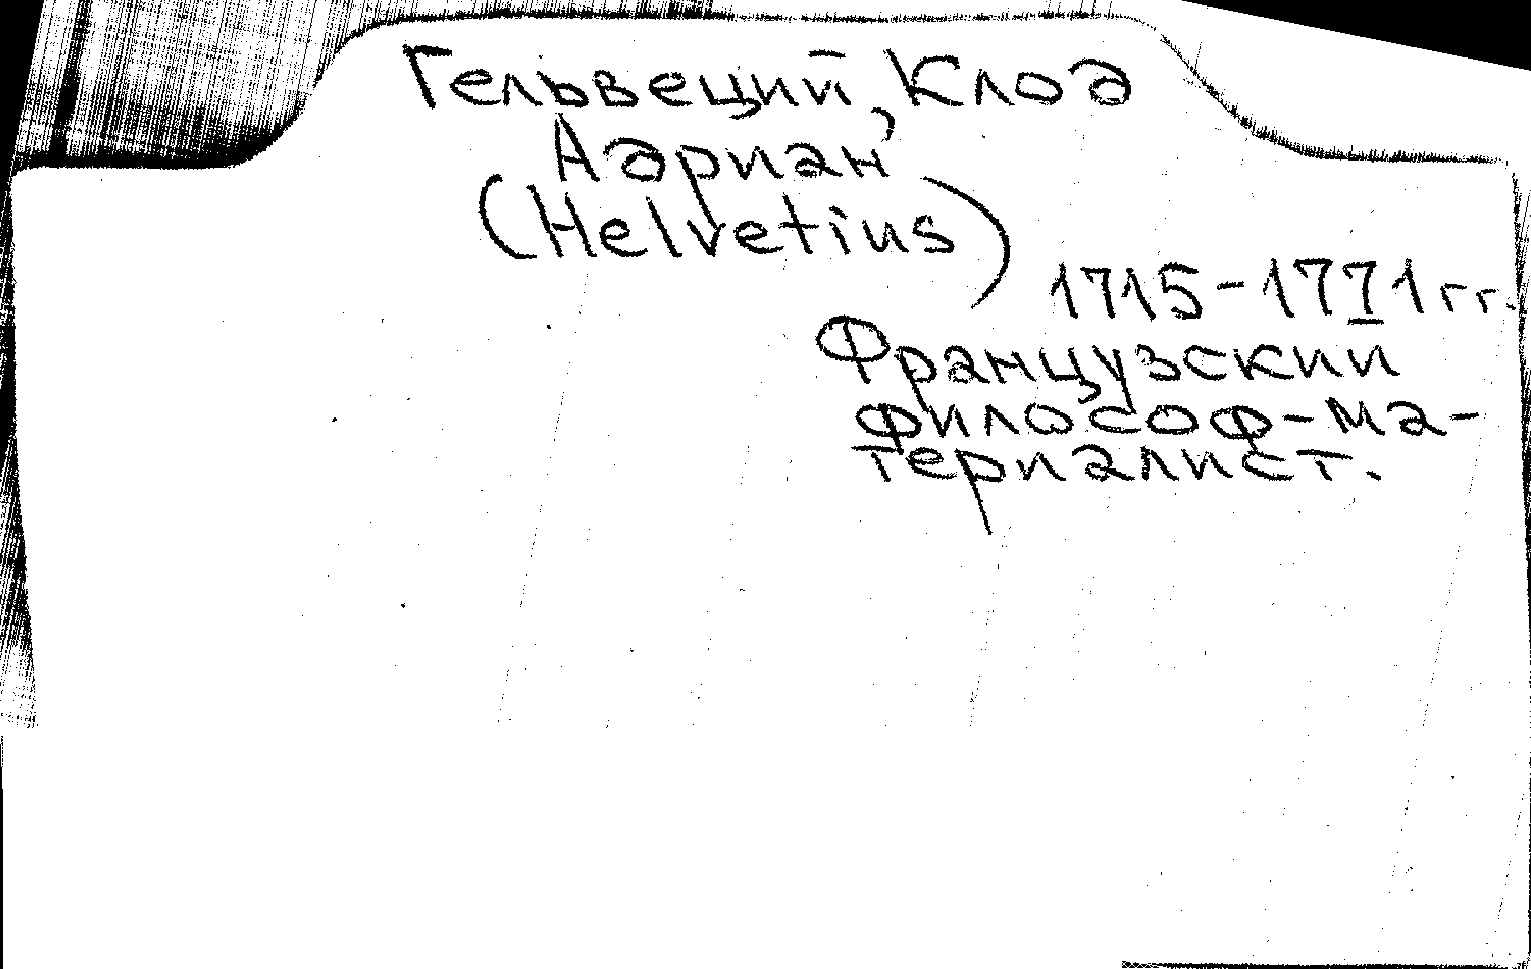 Гельвеций, Клод
Адриан
(Helvetius)
1715-1771 гг.
Французский
философ-ма-
териалист.